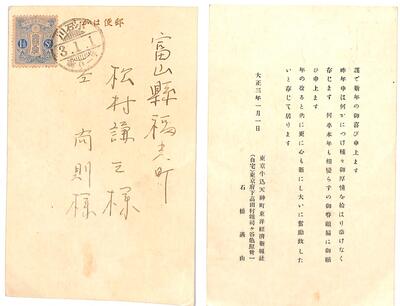 郵便はがき
3.1.1
富山縣福光町
松村謙三様
仝 尚則様
謹で新年の御喜び申上ます
昨年中は何かにつけ種々御厚情を給はり忝けなく
存じます 何卒本年も相變らずの御眷顧偏に御願
ひ申上ます
年の改ると共に更に心も新にし大いに奮勵致した
いと存じて居ります
大正三年一月一日
東京牛込天神町東洋經濟新報社
石橋湛山